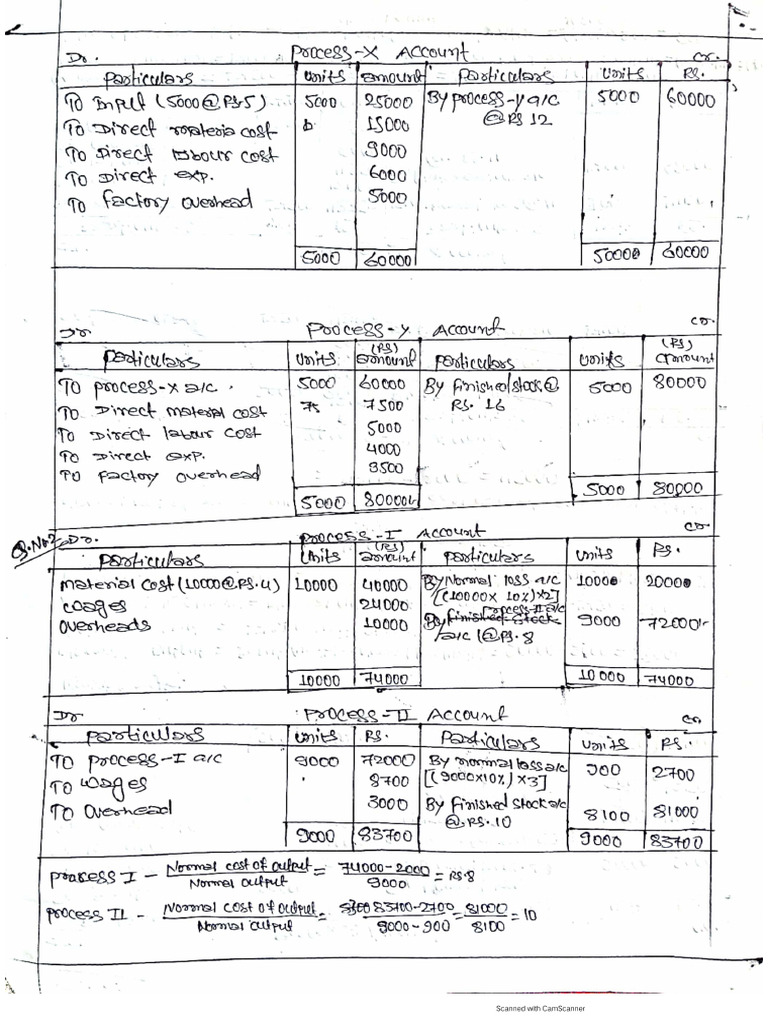 Process-X Account
Dr. Cr.
Particulars Units amount Particulars Units Rs.
To Input (5000@Rs5) 5000 25000 By process-y a/c 5000 60000
To Direct materia cost 15000 @Rs 12
To Direct labour cost 9000
To Direct exp. 6000
To factory overhead 5000
5000 60000 50000 60000
Process-y Account
Dr. Cr.
Particulars Units (Rs) amount Particulars Units (Rs) amount
To process-X a/c. 5000 60000 By finished stock@ 5000 80000
To Direct material cost 75 7500 Rs. 16
To Direct labour cost 5000
To Direct exp. 4000
To Factory overhead 3500
5000 80000 5000 80000
Q.No2
Dr. Process-I Account Cr.
Particulars Units (Rs) amount Particulars Units Rs.
Material Cost (10000@Rs.4) 10000 40000 By Normal loss a/c 1000 2000
Wages 24000 [(10000x 10%)x2]
Overheads 10000 By finished stock process-II a/c 9000 72000/-
a/c (@Rs. 8
10000 74000 10000 74000
Dr Process-II Account Cr
Particulars Units Rs. Particulars Units Rs.
To process-I a/c 9000 72000 By normal loss a/c 900 2700
To wages 8700 [(9000x10%)x3]
To Overhead 3000 By finished stock a/c 8100 81000
@Rs. 10
9000 83700 9000 83700
process I - Normal cost of output / Normal output = 74000-2000 / 9000 = Rs.8
process II - Normal cost of output / Normal output = 83700-2700 / 9000-900 = 81000 / 8100 = 10
Scanned with CamScanner